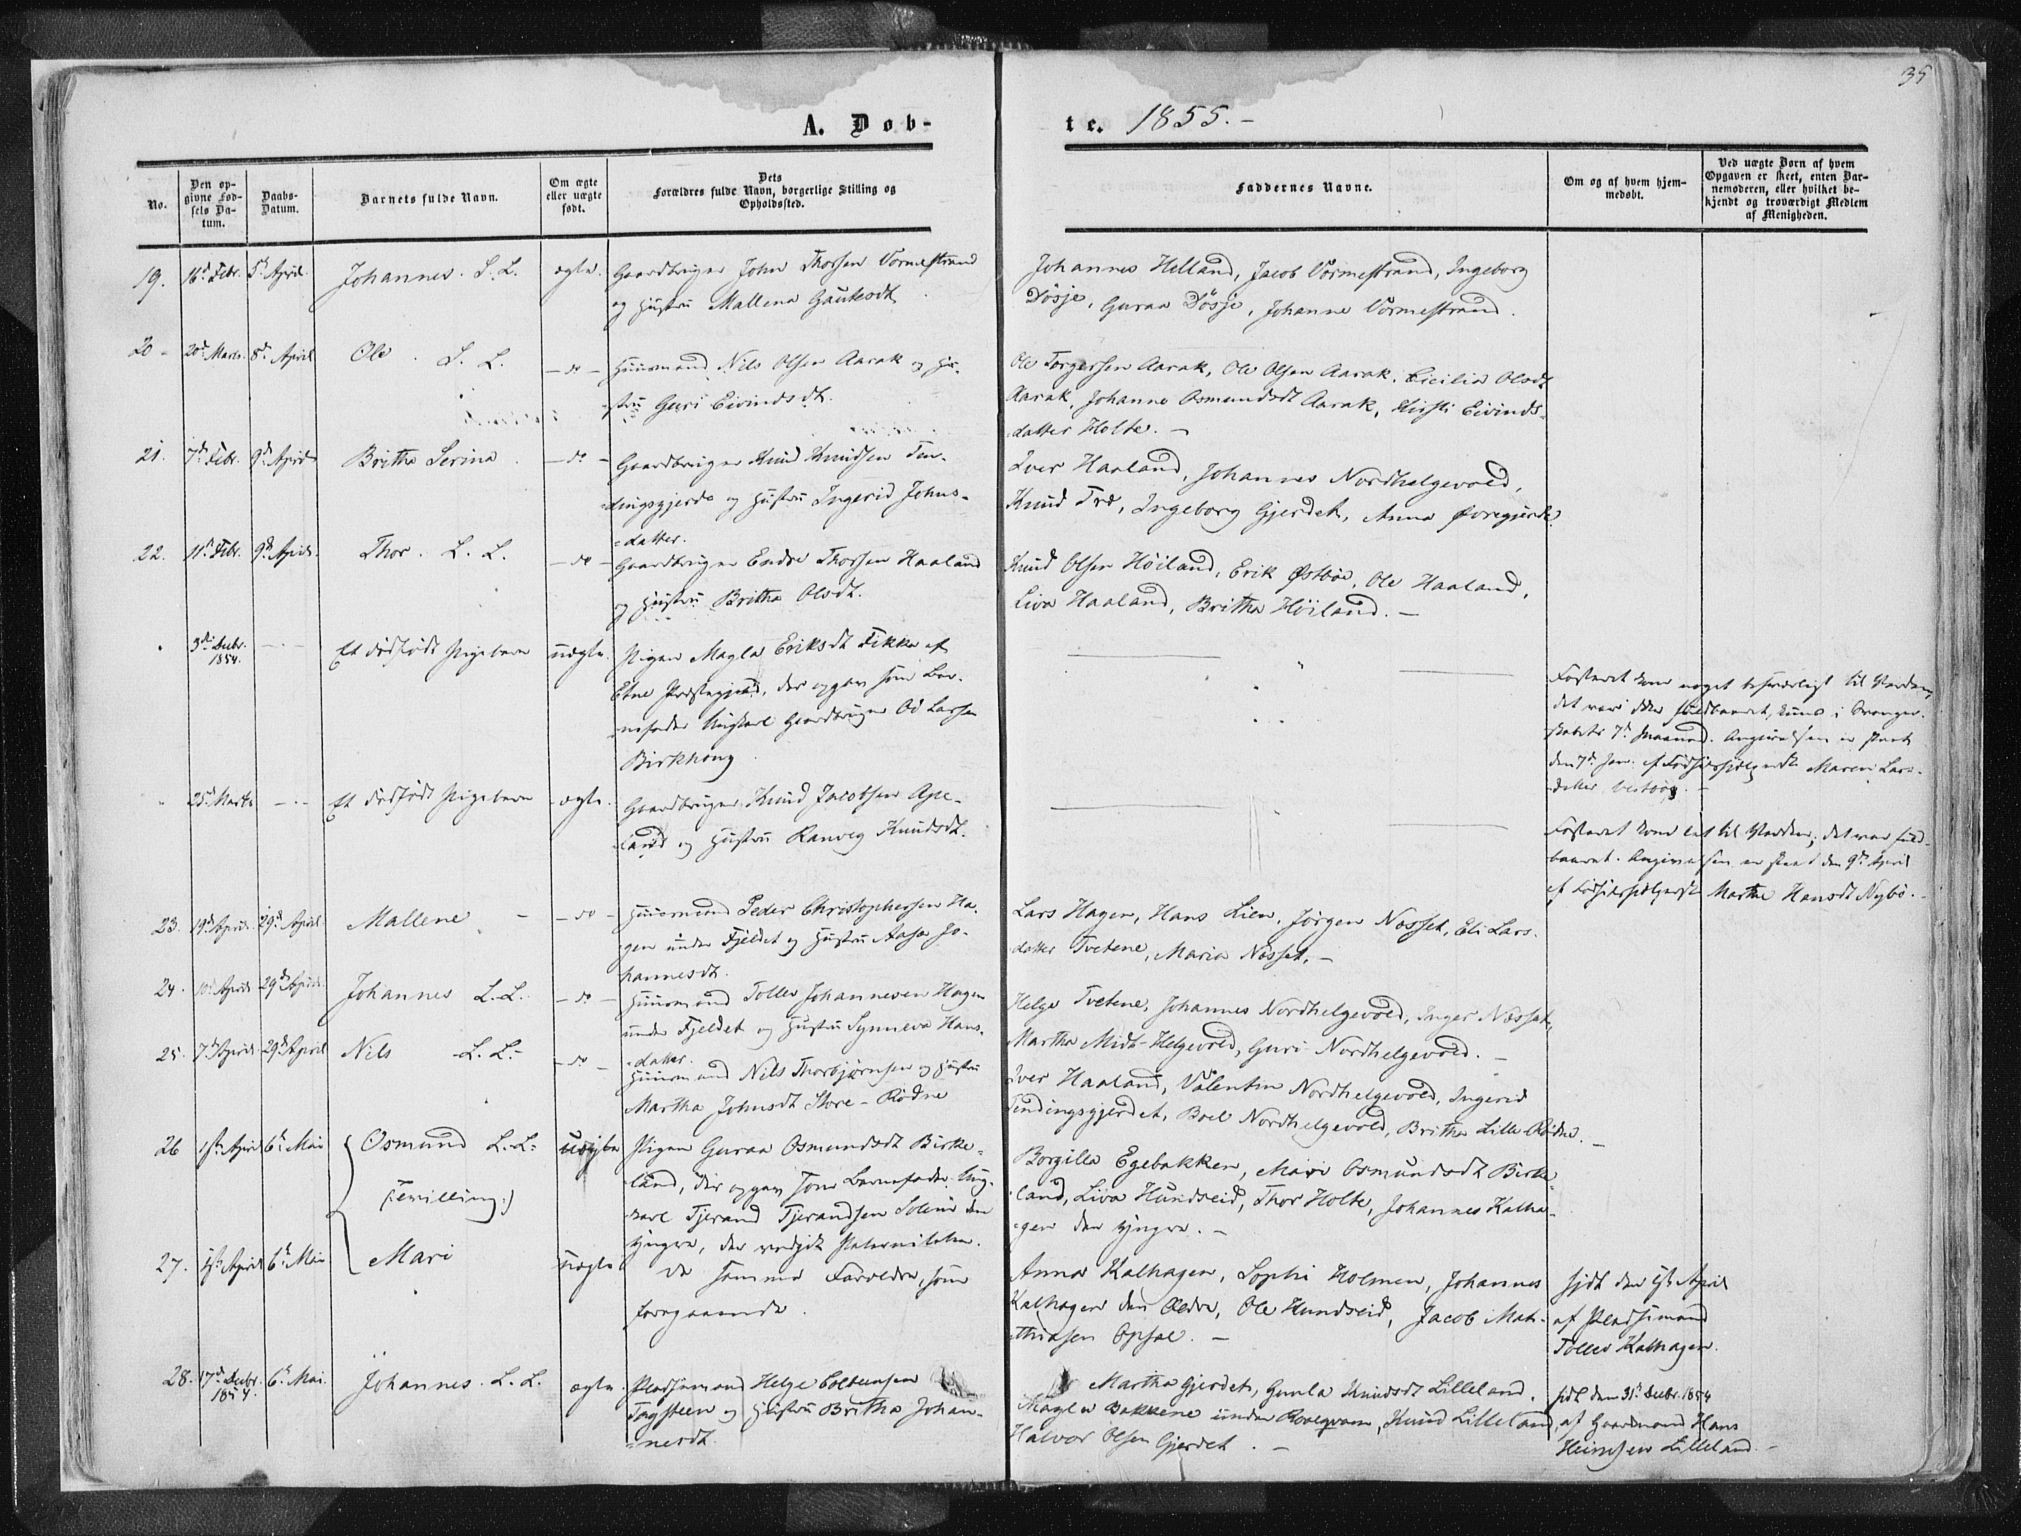 35
A. Dob-
te. 1855.-
No.
Den op-
givne Fød-
sels Da-
tum.
Daabs-
Datum.
Barnets fulde Navn.
Om ægte
eller uægte
født.
Dets
Forældres fulde Navn, borgerlige Stilling og
Opholdssted.
Faddernes Navne.
Om og af hvem hjem-
medøbt.
Ved uægte Børn af hvem
Opgaven er skeet, enten Bar-
nemoderen, eller hvilket be-
kjendt og troværdigt Medlem
af Menigheden.
19. 16d Febr. 5t April. Johannes. L. L. ægte. Gaardbruger John Thorsen Vormestrand
og Hustru Mallena Gautesdt.
Johannes Helland, Jacob Vormestrand, Ingeborg
Døsje, Guraa Døsje, Johanne Vormestrand.
20 - 20d Marts. 8d April Ole. L. L. - do - Huusmand Nils Olsen Aarak og Hu-
stru Guri Eivindsdt.
Ole Torgersen Aarak, Ole Olsen Aarak, Cicilia Olsdt
Aarak, Johanne Osmundsdt Aarak, Kirsti Eivinds-
datter Holte. -
21. 7d Febr. 9d April Britha Serina - do - Gaardbruger Knud Knudsen Tin-
dingsgjerde og Hustru Ingerid Johns-
datter.
Iver Haaland, Johannes Nordhelgevold,
Knud Træ, Ingeborg Gjerdet, Anna Øvregjerde
22. 11d Febr. 9d April. Thor. L. L. - do - Gaardbruger Endre Thorsen Haaland
og Hustru Britha Olsdt.
Knud Olsen Høiland, Erik Østbøe, Ole Haaland,
Liva Haaland, Britha Høiland. -
3d Decbr.
1854. Et dødfødt Pigebarn uægte. Pigen Magla Eriksdt Fikke af
Etne Præstegjæld, der opgav som Bar-
nefader Ungkarl Gaardbruger Od Larsen
Birkhoug
Fosteret kom noget besværligt til Verden,
det var ikke fuldbaaret, kun i Svanger-
skabets 7d Maaned. Angivelsen er skeet
den 7d Jan. af Maren Lars-
datter
25d Marts Et dødfødt Pigebarn ægte. Gaardbruger Knud Jacobsen Ape-
land og Hustru Ranveg Knudsdt.
Fosteret kom let til Verden; det var fuld-
baaret. Angivelsen er skeet den 9d April
af Martha Hansdt Nybø. -
23. 19d April. 29d April Mallene - - do - Huusmand Peder Christophersen Ha-
gen under Fjeldet og Hustru Aasa Jo-
hannesdt.
Lars Hagen, Hans Lien, Jørgen Næsset, Eli Lars-
datter Tvetene, Maria Næsset. -
24. 10d April 29d April. Johannes L. L. - do - Huusmand Tollev Johannesen Hagen
under Fjeldet og Hustru Synneva Hans-
datter.
Helge Tvetene, Johannes Nordhelgevold, Inger Næsset,
Martha Midt-Helgevold, Guri Nordhelgevold. -
25. 7d April 29d April Nils L. L. - do - Huusmand Nils Thorbjørnsen og Hustru
Martha Johnsdt Store-Rødne
Iver Haaland, Valentin Nordhelgevold, Ingerid
Tindingsgjerdet, Boel Nordhelgevold, Britha Lille Rødne. -
26 April 6t Mai Osmund L. L. uægte Pigen Guraa Osmundsdt Birke-
(Tvilling.) land, der opgav som Barnefader Ung-
karl Tjerand Tjerandsen Soleim den
yngre, der vedgik Paterniteten.
Borgilla Egebakken, Mari Osmundsdt Birke-
land, Liva Hundseid, Thor Holte, Johannes Kalha-
gen den yngre. -
27. April 6t Mai Mari uægte De samme Forældre, som
foregaaende.
Anna Kalhagen, Sophi Holmen, Johannes
Kalhagen den Ældre, Ole Hundseid, Jacob Mat-
thiasen Opsal. -
hjdt den April
af Pladsmand
Tollev Kalhagen.
28. 17d Decbr.
1854. 6t Mai. Johannes. L. L. ægte. Pladsmand Helge Colbeinsen
Tagsteen og Hustru Britha Johan-
nesdt.
Martha Gjerdet, Gunla Knudsdt Lilleland,
Magla Bakkene under Roalqvam, Knud Lilleland,
Halvor Olsen Gjerdet. -
hjdt den 31t Decbr. 1854
af Gaardmand Hans
Lilleland. -